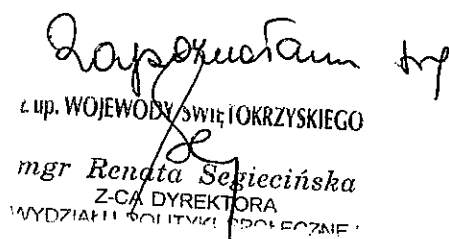 Zapoznałam się
z up. WOJEWODY ŚWIĘTOKRZYSKIEGO
mgr Renata Segiecińska
Z-CA DYREKTORA
WYDZIAŁU POLITYKI SPOŁECZNEJ